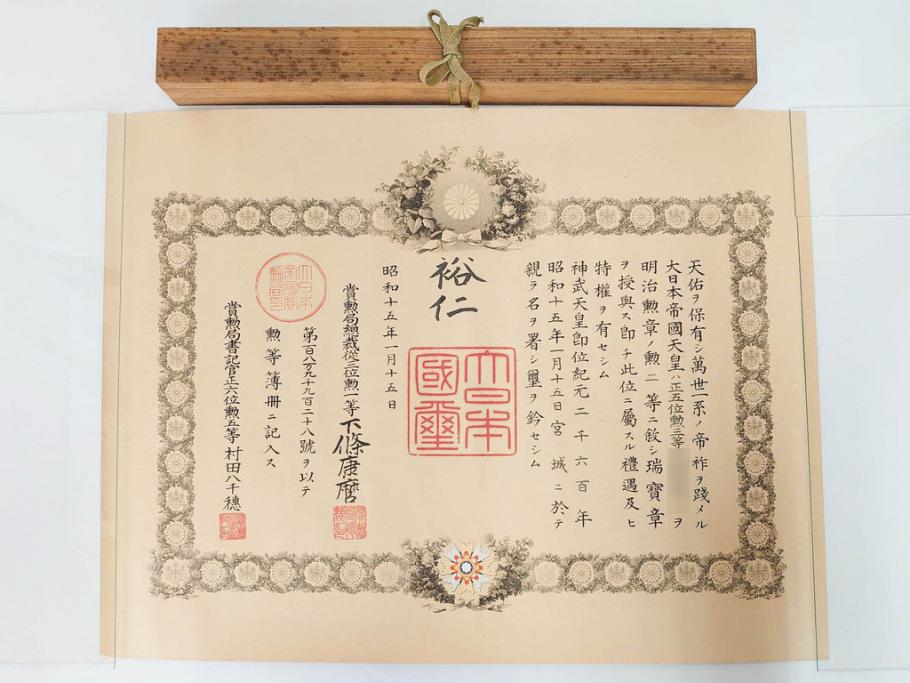 天佑ヲ保有シ萬世一系ノ帝祚ヲ踐メル
大日本帝國天皇ハ正五位勲三等 ヲ
明治勲章ノ勲二等ニ敍シ瑞寶章
ヲ授與ス即チ此位ニ屬スル禮遇及ヒ
特權ヲ有セシム
神武天皇即位紀元二千六百年
昭和十五年一月十五日宮城ニ於テ
親ラ名ヲ署シ璽ヲ鈐セシム
裕仁
大日本
國璽
昭和十五年一月十五日
賞勲局總裁從三位勲一等下條康麿
第百八万九千九百二十八號ヲ以テ
勲等簿冊ニ記入ス
賞勲局書記官正六位勲五等村田八千穂